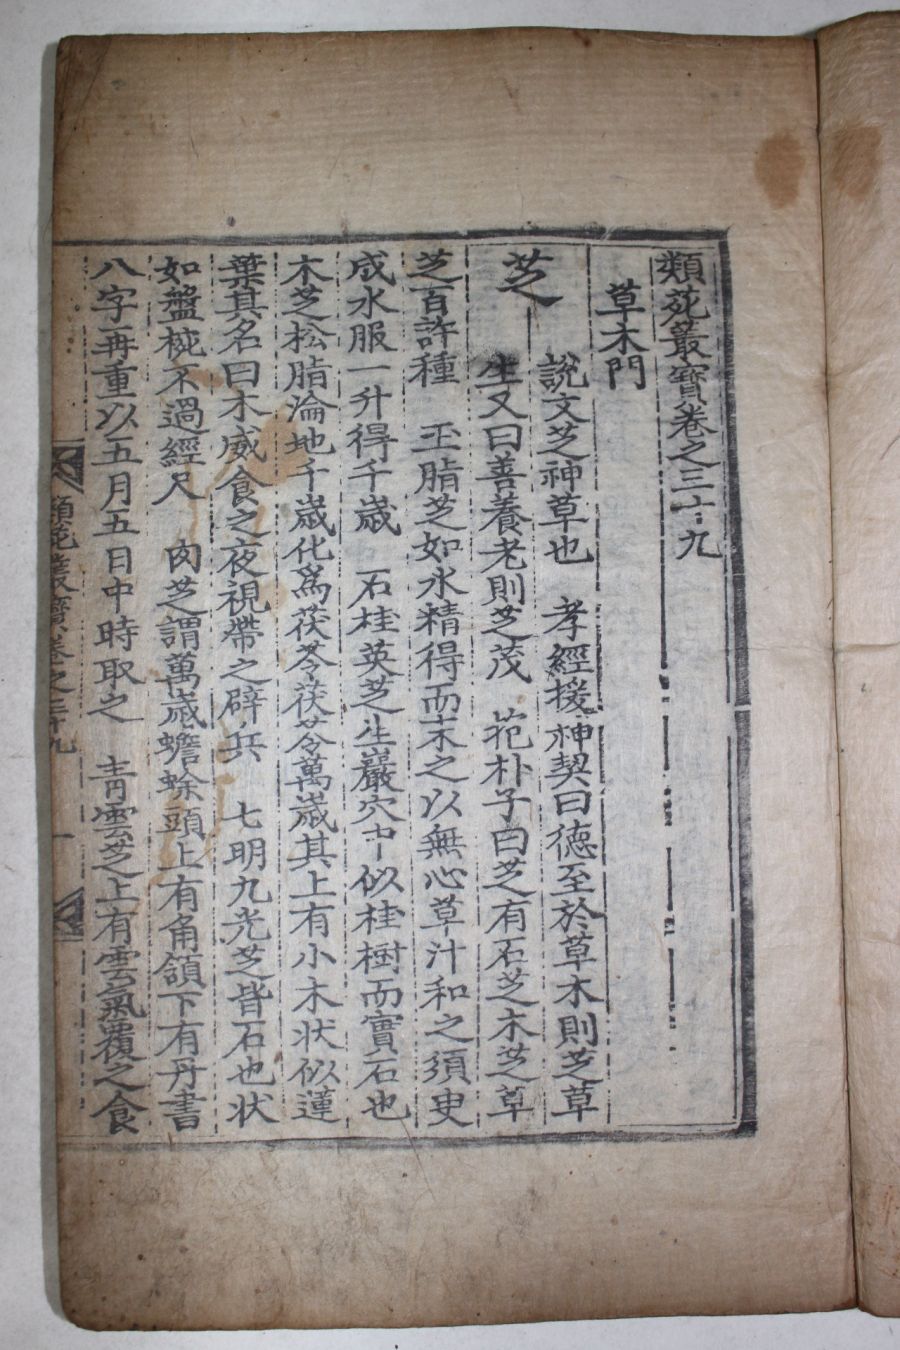 類苑叢寶卷之三十九
草木門
芝
說文芝神草也 孝經援神契曰德至於草木則芝草
生又曰善養老則芝茂 抱朴子曰芝有石芝木芝草
芝百許種 玉脂芝如水精得而末之以無心草汁和之須臾
成水服一升得千歲 石桂英芝生巖穴中似桂樹而實石也
木芝松脂淪地千歲化爲茯苓茯苓萬歲其上有小木狀似蓮
葉其名曰木威食之夜視帶之辟兵 七明九光芝皆石也狀
如盤椀不過經尺 肉芝謂萬歲蟾蜍頭上有角頷下有丹書
八字再重以五月五日中時取之 靑雲芝上有雲氣覆之食
類苑叢寶卷之三十九 一